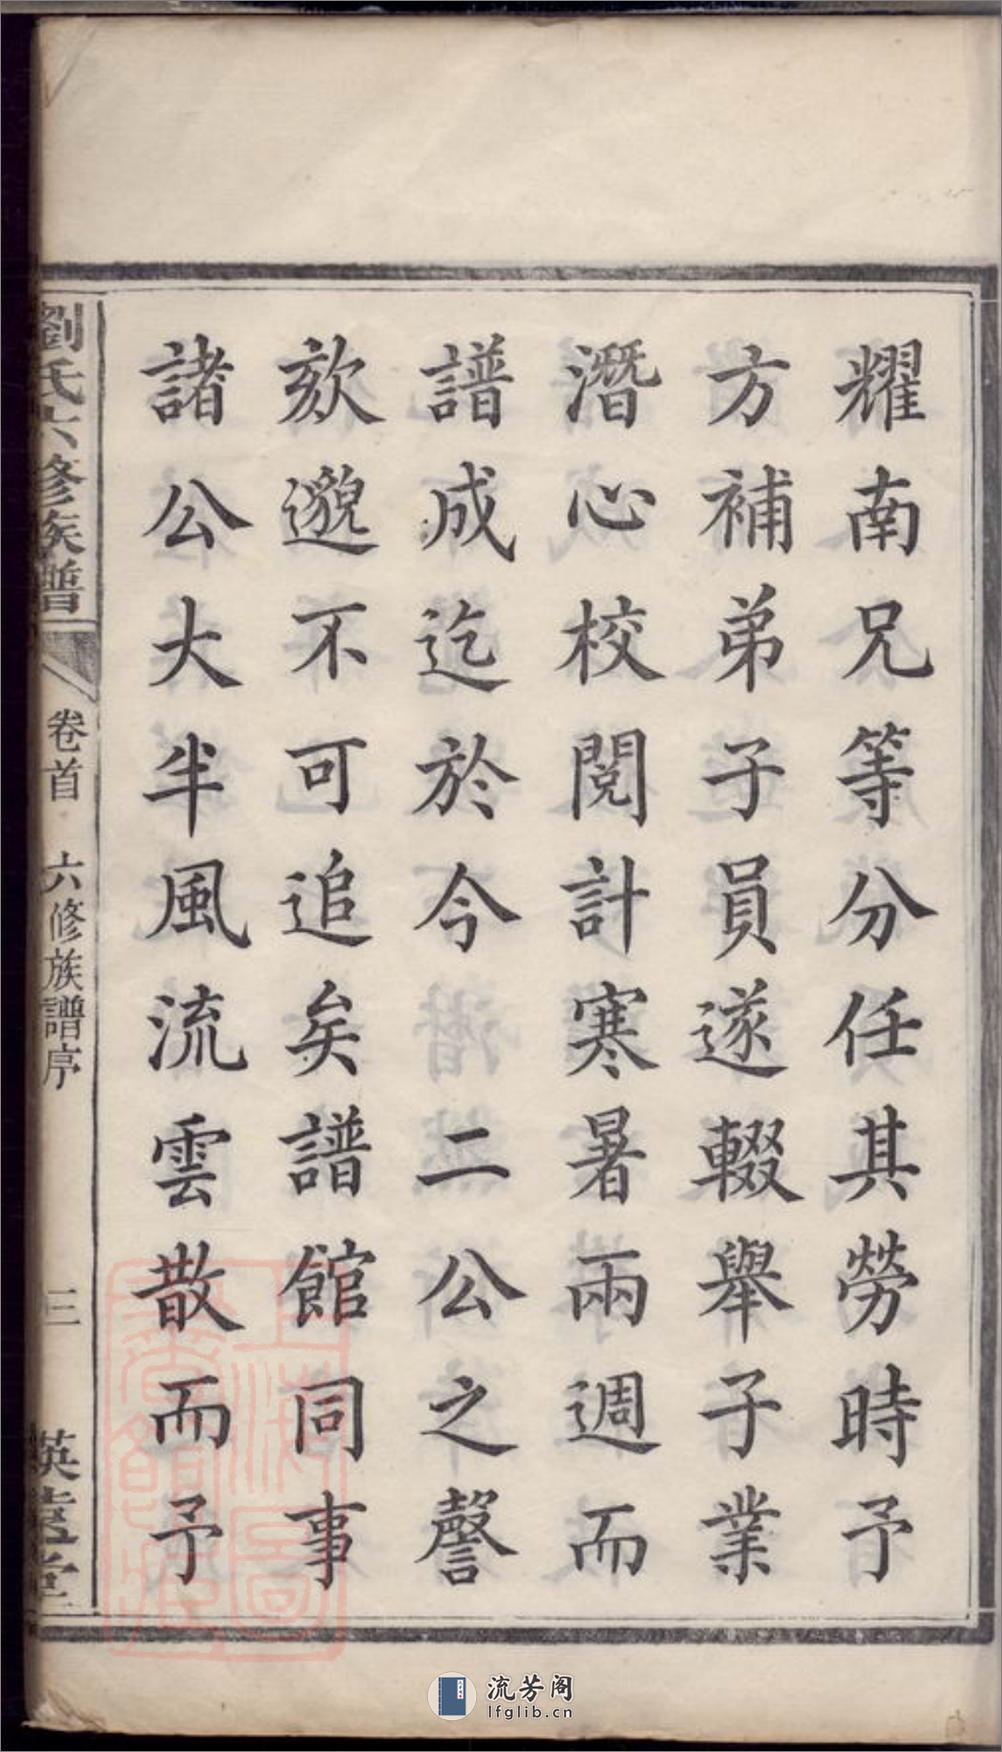 耀南兄等分任其勞時予
方補弟子員遂輟舉子業
潛心校閱計寒暑兩週而
譜成迄於今二公之謦
欬邈不可追矣譜館同事
諸公大半風流雲散而予
劉氏六修族譜
卷首 六修族譜序
三
英遠堂
上海圖書館藏
流芳阁
lfglib.cn